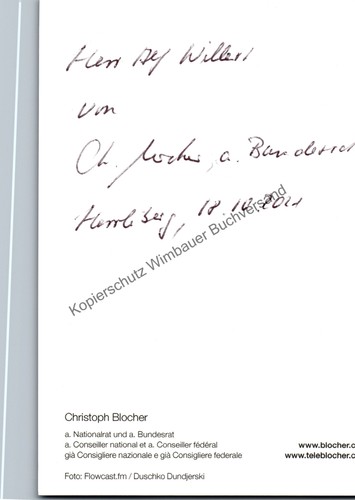 Herr Alf Willert
von
Ch. Blocher, a. Bundesrat
Herrliberg, 18.10.2021
Kopierschutz Wimbauer Buchversand
Christoph Blocher
a. Nationalrat und a. Bundesrat
a. Conseiller national et a. Conseiller fédéral
già Consigliere nazionale e già Consigliere federale
www.blocher.c
www.teleblocher.c
Foto: Flowcast.fm / Duschko Dundjerski